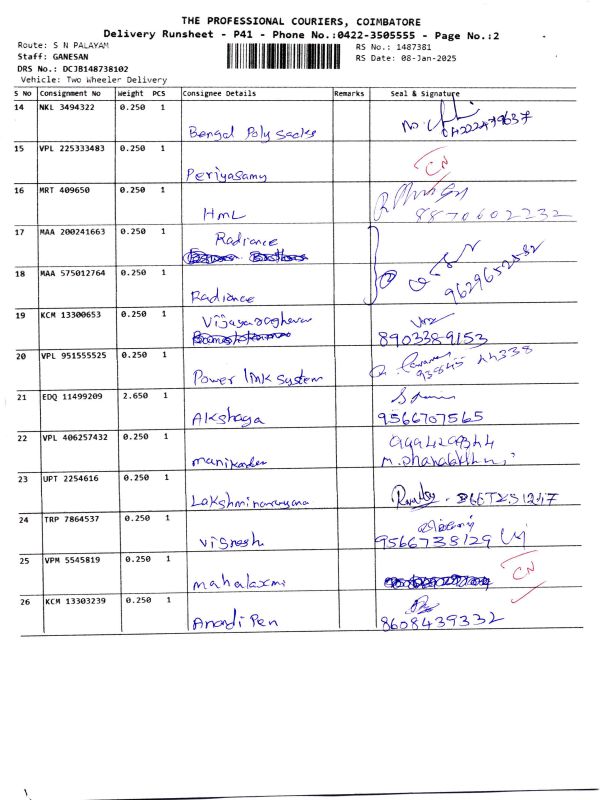 THE PROFESSIONAL COURIERS, COIMBATORE
Delivery Runsheet - P41 - Phone No.:0422-3505555 - Page No.:2
Route: S N PALAYAM
Staff: GANESAN
DRS No.: DCJB148738102
Vehicle: Two Wheeler Delivery
RS No.: 1487381
RS Date: 08-Jan-2025
S No Consignment No Weight PCS Consignee Details Remarks Seal & Signature
14 NKL 3494322 0.250 1
Bengal Poly sacks
15 VPL 225333483 0.250 1
Periyasamy CN
16 MRT 409650 0.250 1
HML 8870602232
17 MAA 200241663 0.250 1
Radiance
18 MAA 575012764 0.250 1
Radiance 9629652582
19 KCM 13300653 0.250 1
Vijayaraghavan
8903389153
20 VPL 951555525 0.250 1
Power link system
21 EDQ 11499209 2.650 1
Akshaya 9566707565
22 VPL 406257432 0.250 1
manikandan
23 UPT 2254616 0.250 1
Lakshminarayana
24 TRP 7864537 0.250 1
Vignesh 9566738129
25 VPM 5545819 0.250 1
mahalaxmi CN
26 KCM 13303239 0.250 1
Anandi Pen 8608439332